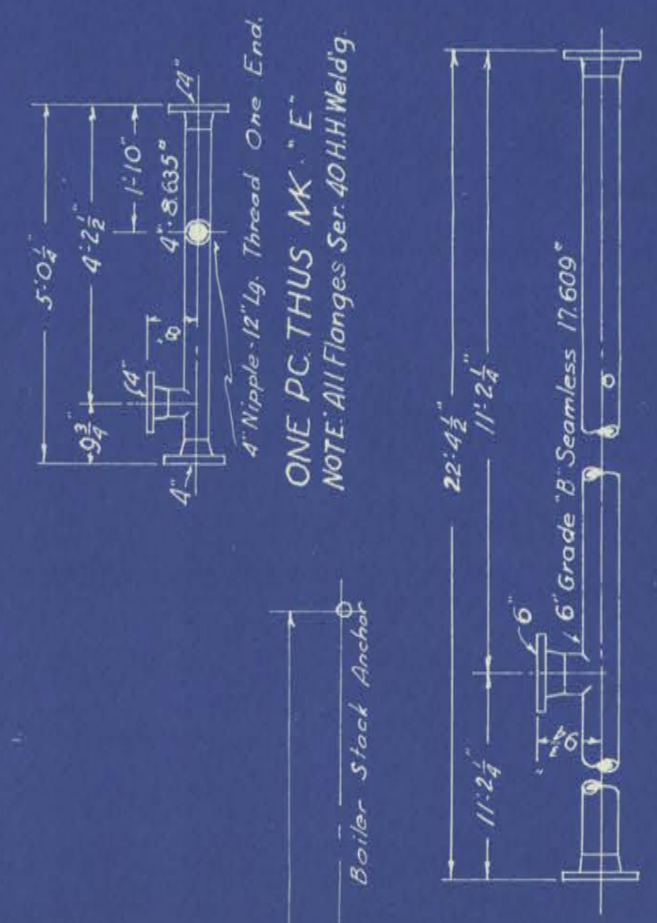 5'-0 1/4"
4'-2 1/2"
9 3/4"
1'-10"
4"
4"
4"
8"
4"-8.635#
4" Nipple-12" Lg. Thread One End.
ONE PC. THUS MK. "E"
NOTE: All Flanges Ser. 40 H.H. Weld'g.
Boiler Stack Anchor
22'-4 1/2"
11'-2 1/4"
11'-2 1/4"
9 3/4"
6"
6" Grade "B" Seamless 17.609#